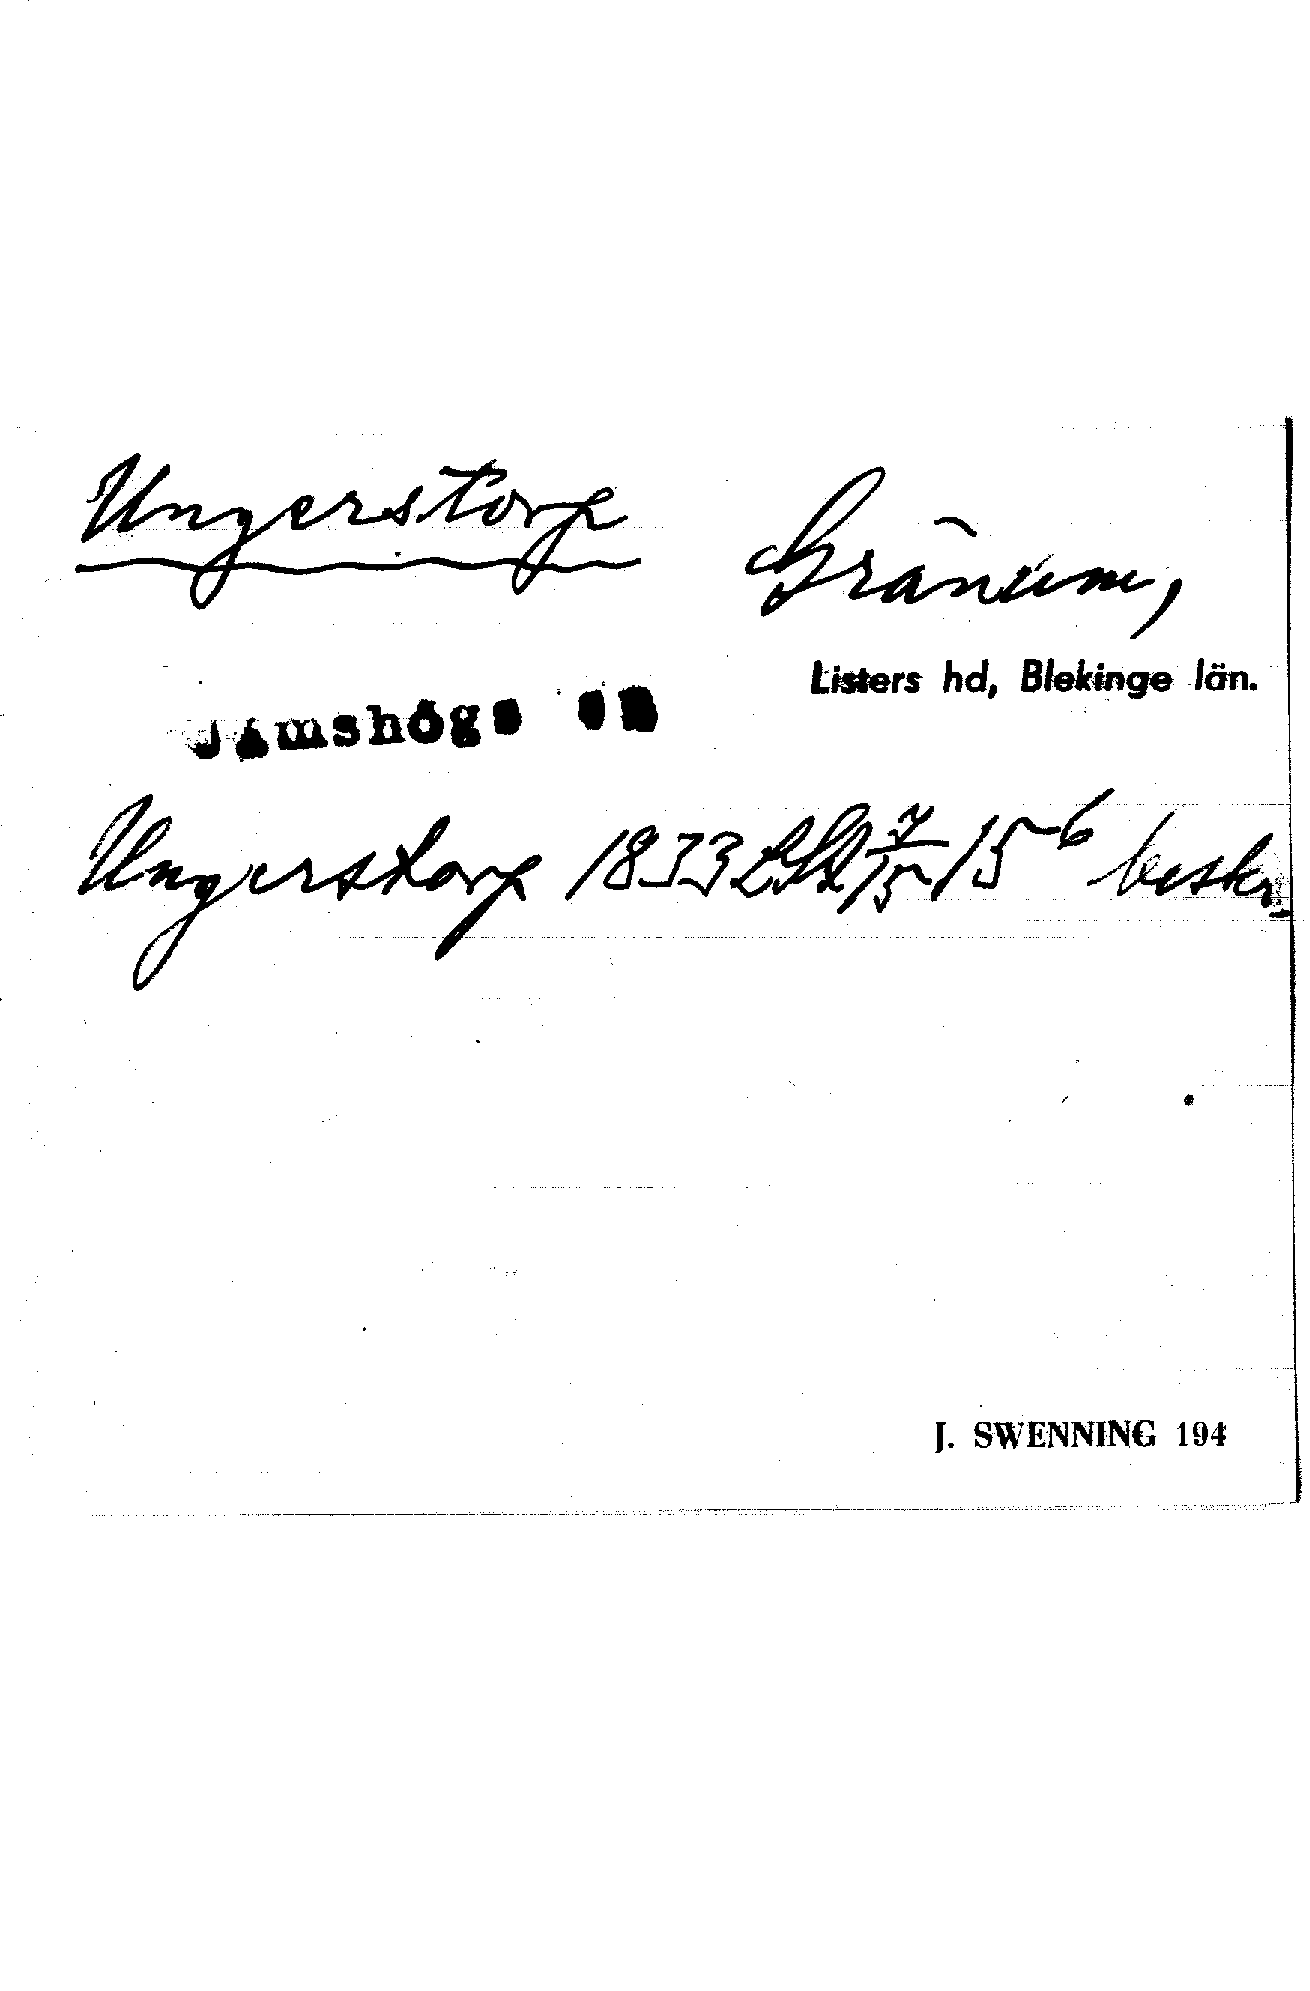 Ungerstorp
Gränum,
Listers hd, Blekinge län.
Jämshögs sn
Ungerstorp 1833 LSA 7/15 / 15-6 beskr.
J. SWENNING 194